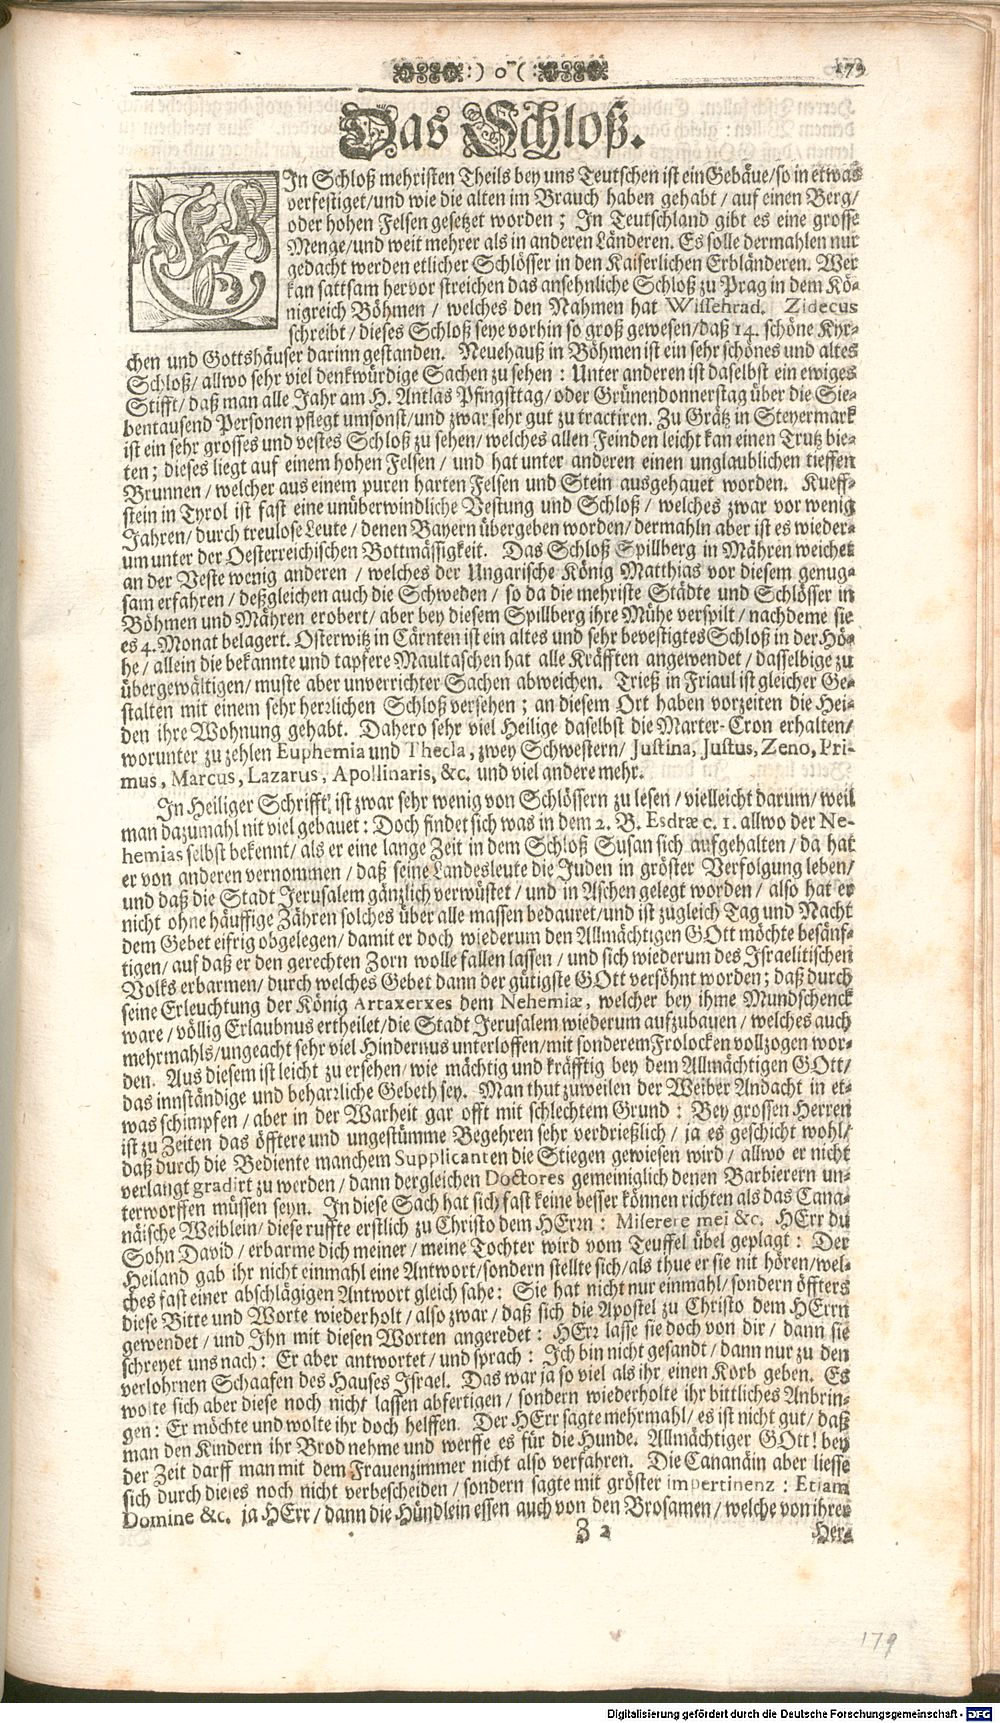 :) o (:
179
Das Schloß.
EIn Schloß mehristen Theils bey uns Teutschen ist ein Gebäue/ so in etwas
verfestiget/und wie die alten im Brauch haben gehabt / auf einen Berg/
oder hohen Felsen gesetzet worden; In Teutschland gibt es eine grosse
Menge/und weit mehrer als in anderen Länderen. Es solle dermahlen nur
gedacht werden etlicher Schlösser in den Kaiserlichen Erbländeren. Wer
kan sattsam hervor streichen das ansehnliche Schloß zu Prag in dem Kö-
nigreich Böhmen / welches den Nahmen hat Wissehrad. Zidecus
schreibt / dieses Schloß seye vorhin so groß gewesen/daß 14. schöne Kyr-
chen und Gottshäuser darinn gestanden. Neuehauß in Böhmen ist ein sehr schönes und altes
Schloß/ allwo sehr viel denkwürdige Sachen zu sehen : Unter anderen ist daselbst ein ewiges
Stifft/ daß man alle Jahr am H. Antlas Pfingsttag/ oder Grünendonnerstag über die Sie-
bentausend Personen pflegt umsonst/und zwar sehr gut zu tractiren. Zu Grätz in Steyermark
ist ein sehr grosses und vestes Schloß zu sehen/ welches allen Feinden leicht kan einen Trutz bie-
ten; dieses liegt auf einem hohen Felsen / und hat unter anderen einen unglaublichen tieffen
Brunnen / welcher aus einem puren harten Felsen und Stein ausgehauet worden. Kueff-
stein in Tyrol ist fast eine unüberwindliche Vestung und Schloß / welches zwar vor wenig
Jahren/ durch treulose Leute / denen Bayern übergeben worden/ dermahln aber ist es wieder-
um unter der Oesterreichischen Bottmässigkeit. Das Schloß Spillberg in Mähren weichet
an der Veste wenig anderen / welches der Ungarische König Matthias vor diesem genug-
sam erfahren / deßgleichen auch die Schweden / so da die mehriste Städte und Schlösser in
Böhmen und Mähren erobert/ aber bey diesem Spillberg ihre Mühe verspilt/ nachdeme sie
es 4. Monat belagert. Osterwitz in Cärnten ist ein altes und sehr bevestigtes Schloß in der Hö-
he/ allein die bekannte und tapfere Maultaschen hat alle Kräfften angewendet / dasselbige zu
übergewältigen/ muste aber unverrichter Sachen abweichen. Trieß in Friaul ist gleicher Ge-
stalten mit einem sehr herrlichen Schloß versehen ; an diesem Ort haben vorzeiten die Hei-
den ihre Wohnung gehabt. Dahero sehr viel Heilige daselbst die Marter-Cron erhalten/
worunter zu zehlen Euphemia und Thecla, zwey Schwestern/ Justina, Justus, Zeno, Pri-
mus, Marcus, Lazarus, Apollinaris, &c. und viel andere mehr.
In Heiliger Schrifft ist zwar sehr wenig von Schlössern zu lesen / vielleicht darum/ weil
man dazumahl nit viel gebauet : Doch findet sich was in dem 2. B. Esdræ c. 1. allwo der Ne-
hemias selbst bekennt/ als er eine lange Zeit in dem Schloß Susan sich aufgehalten/ da hat
er von anderen vernommen / daß seine Landesleute die Juden in gröster Verfolgung leben/
und daß die Stadt Jerusalem gänzlich verwüstet / und in Aschen gelegt worden / also hat er
nicht ohne häuffige Zähren solches über alle massen bedauret/und ist zugleich Tag und Nacht
dem Gebet eifrig obgelegen/ damit er doch wiederum den Allmächtigen GOtt möchte besänf-
tigen/ auf daß er den gerechten Zorn wolle fallen lassen / und sich wiederum des Israelitischen
Volks erbarmen/ durch welches Gebet dann der gütigste GOtt versöhnt worden; daß durch
seine Erleuchtung der König Artaxerxes dem Nehemiæ, welcher bey ihme Mundschenck
ware / völlig Erlaubnus ertheilet/die Stadt Jerusalem wiederum aufzubauen / welches auch
mehrmahls/ungeacht sehr viel Hindernus unterloffen/mit sonderem Frolocken vollzogen wor-
den. Aus diesem ist leicht zu ersehen/ wie mächtig und kräfftig bey dem Allmächtigen GOtt/
das innständige und beharrliche Gebeth sey. Man thut zuweilen der Weiber Andacht in et-
was schimpfen / aber in der Warheit gar offt mit schlechtem Grund : Bey grossen Herren
ist zu Zeiten das öfftere und ungestümme Begehren sehr verdrießlich / ja es geschicht wohl/
daß durch die Bediente manchem Supplicanten die Stiegen gewiesen wird / allwo er nicht
verlangt gradirt zu werden / dann dergleichen Doctores gemeiniglich denen Barbierern un-
terworffen müssen seyn. In diese Sach hat sich fast keine besser können richten als das Cana-
näische Weiblein/ diese ruffte erstlich zu Christo dem HErrn : Miserere mei &c. HErr du
Sohn David / erbarme dich meiner / meine Tochter wird vom Teuffel übel geplagt : Der
Heiland gab ihr nicht einmahl eine Antwort/sondern stellte sich/als thue er sie nit hören/wel-
ches fast einer abschlägigen Antwort gleich sahe: Sie hat nicht nur einmahl/ sondern öffters
diese Bitte und Worte wiederholt / also zwar / daß sich die Apostel zu Christo dem HErrn
gewendet / und Ihn mit diesen Worten angeredet : HErr lasse sie doch von dir / dann sie
schreyet uns nach: Er aber antwortet / und sprach : Ich bin nicht gesandt / dann nur zu den
verlohrnen Schaafen des Hauses Israel. Das war ja so viel als ihr einen Korb geben. Es
wolte sich aber diese noch nicht lassen abfertigen / sondern wiederholte ihr bittliches Anbrin-
gen: Er möchte und wolte ihr doch helffen. Der HErr sagte mehrmahl/ es ist nicht gut/ daß
man den Kindern ihr Brod nehme und werffe es für die Hunde. Allmächtiger GOtt! bey
der Zeit darff man mit dem Frauenzimmer nicht also verfahren. Die Cananäin aber liesse
sich durch dieses noch nicht verbescheiden/ sondern sagte mit gröster impertinenz : Etiam
Domine &c. ja HErr / dann die Hündlein essen auch von den Brosamen / welche von ihrer
Z 2
Her-
179
Digitalisierung gefördert durch die Deutsche Forschungsgemeinschaft - DFG